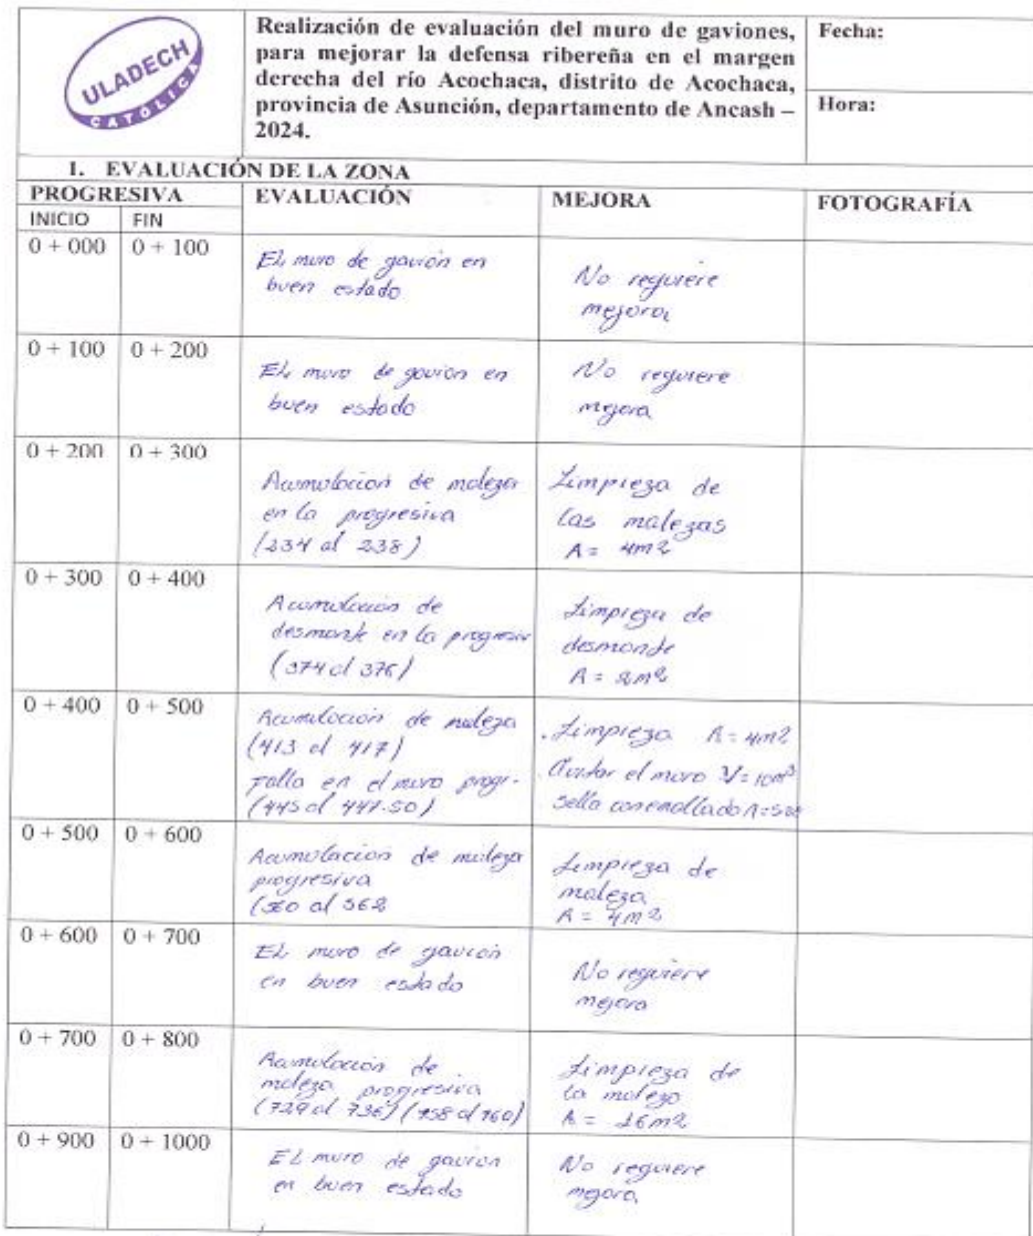 ULADECH
CATÓLICA
Realización de evaluación del muro de gaviones,
para mejorar la defensa ribereña en el margen
derecha del río Acochaca, distrito de Acochaca,
provincia de Asunción, departamento de Ancash –
2024.
Fecha:
Hora:
I. EVALUACIÓN DE LA ZONA
PROGRESIVA
EVALUACIÓN
MEJORA
FOTOGRAFÍA
INICIO
FIN
0 + 000
0 + 100
El muro de gavión en
buen estado
No requiere
mejora
0 + 100
0 + 200
El muro de gavión en
buen estado
No requiere
mejora
0 + 200
0 + 300
Acumulación de maleza
en la progresiva
(234 al 238)
Limpieza de
las malezas
A = 4m2
0 + 300
0 + 400
Acumulación de
desmonte en la progresiv
(374 al 376)
Limpieza de
desmonte
A = 2m2
0 + 400
0 + 500
Acumulación de maleza
(413 al 417)
Falla en el muro progr.
(445 al 447.50)
. Limpieza A = 4m2
el muro V = 10m3
sello con enmallado
0 + 500
0 + 600
Acumulación de maleza
progresiva
(560 al 562
Limpieza de
maleza
A = 4m2
0 + 600
0 + 700
El muro de gavión
en buen estado
No requiere
mejora
0 + 700
0 + 800
Acumulación de
maleza progresiva
(729 al 736) (758 al 760)
Limpieza de
la maleza
A = 16m2
0 + 900
0 + 1000
El muro de gavión
en buen estado
No requiere
mejora